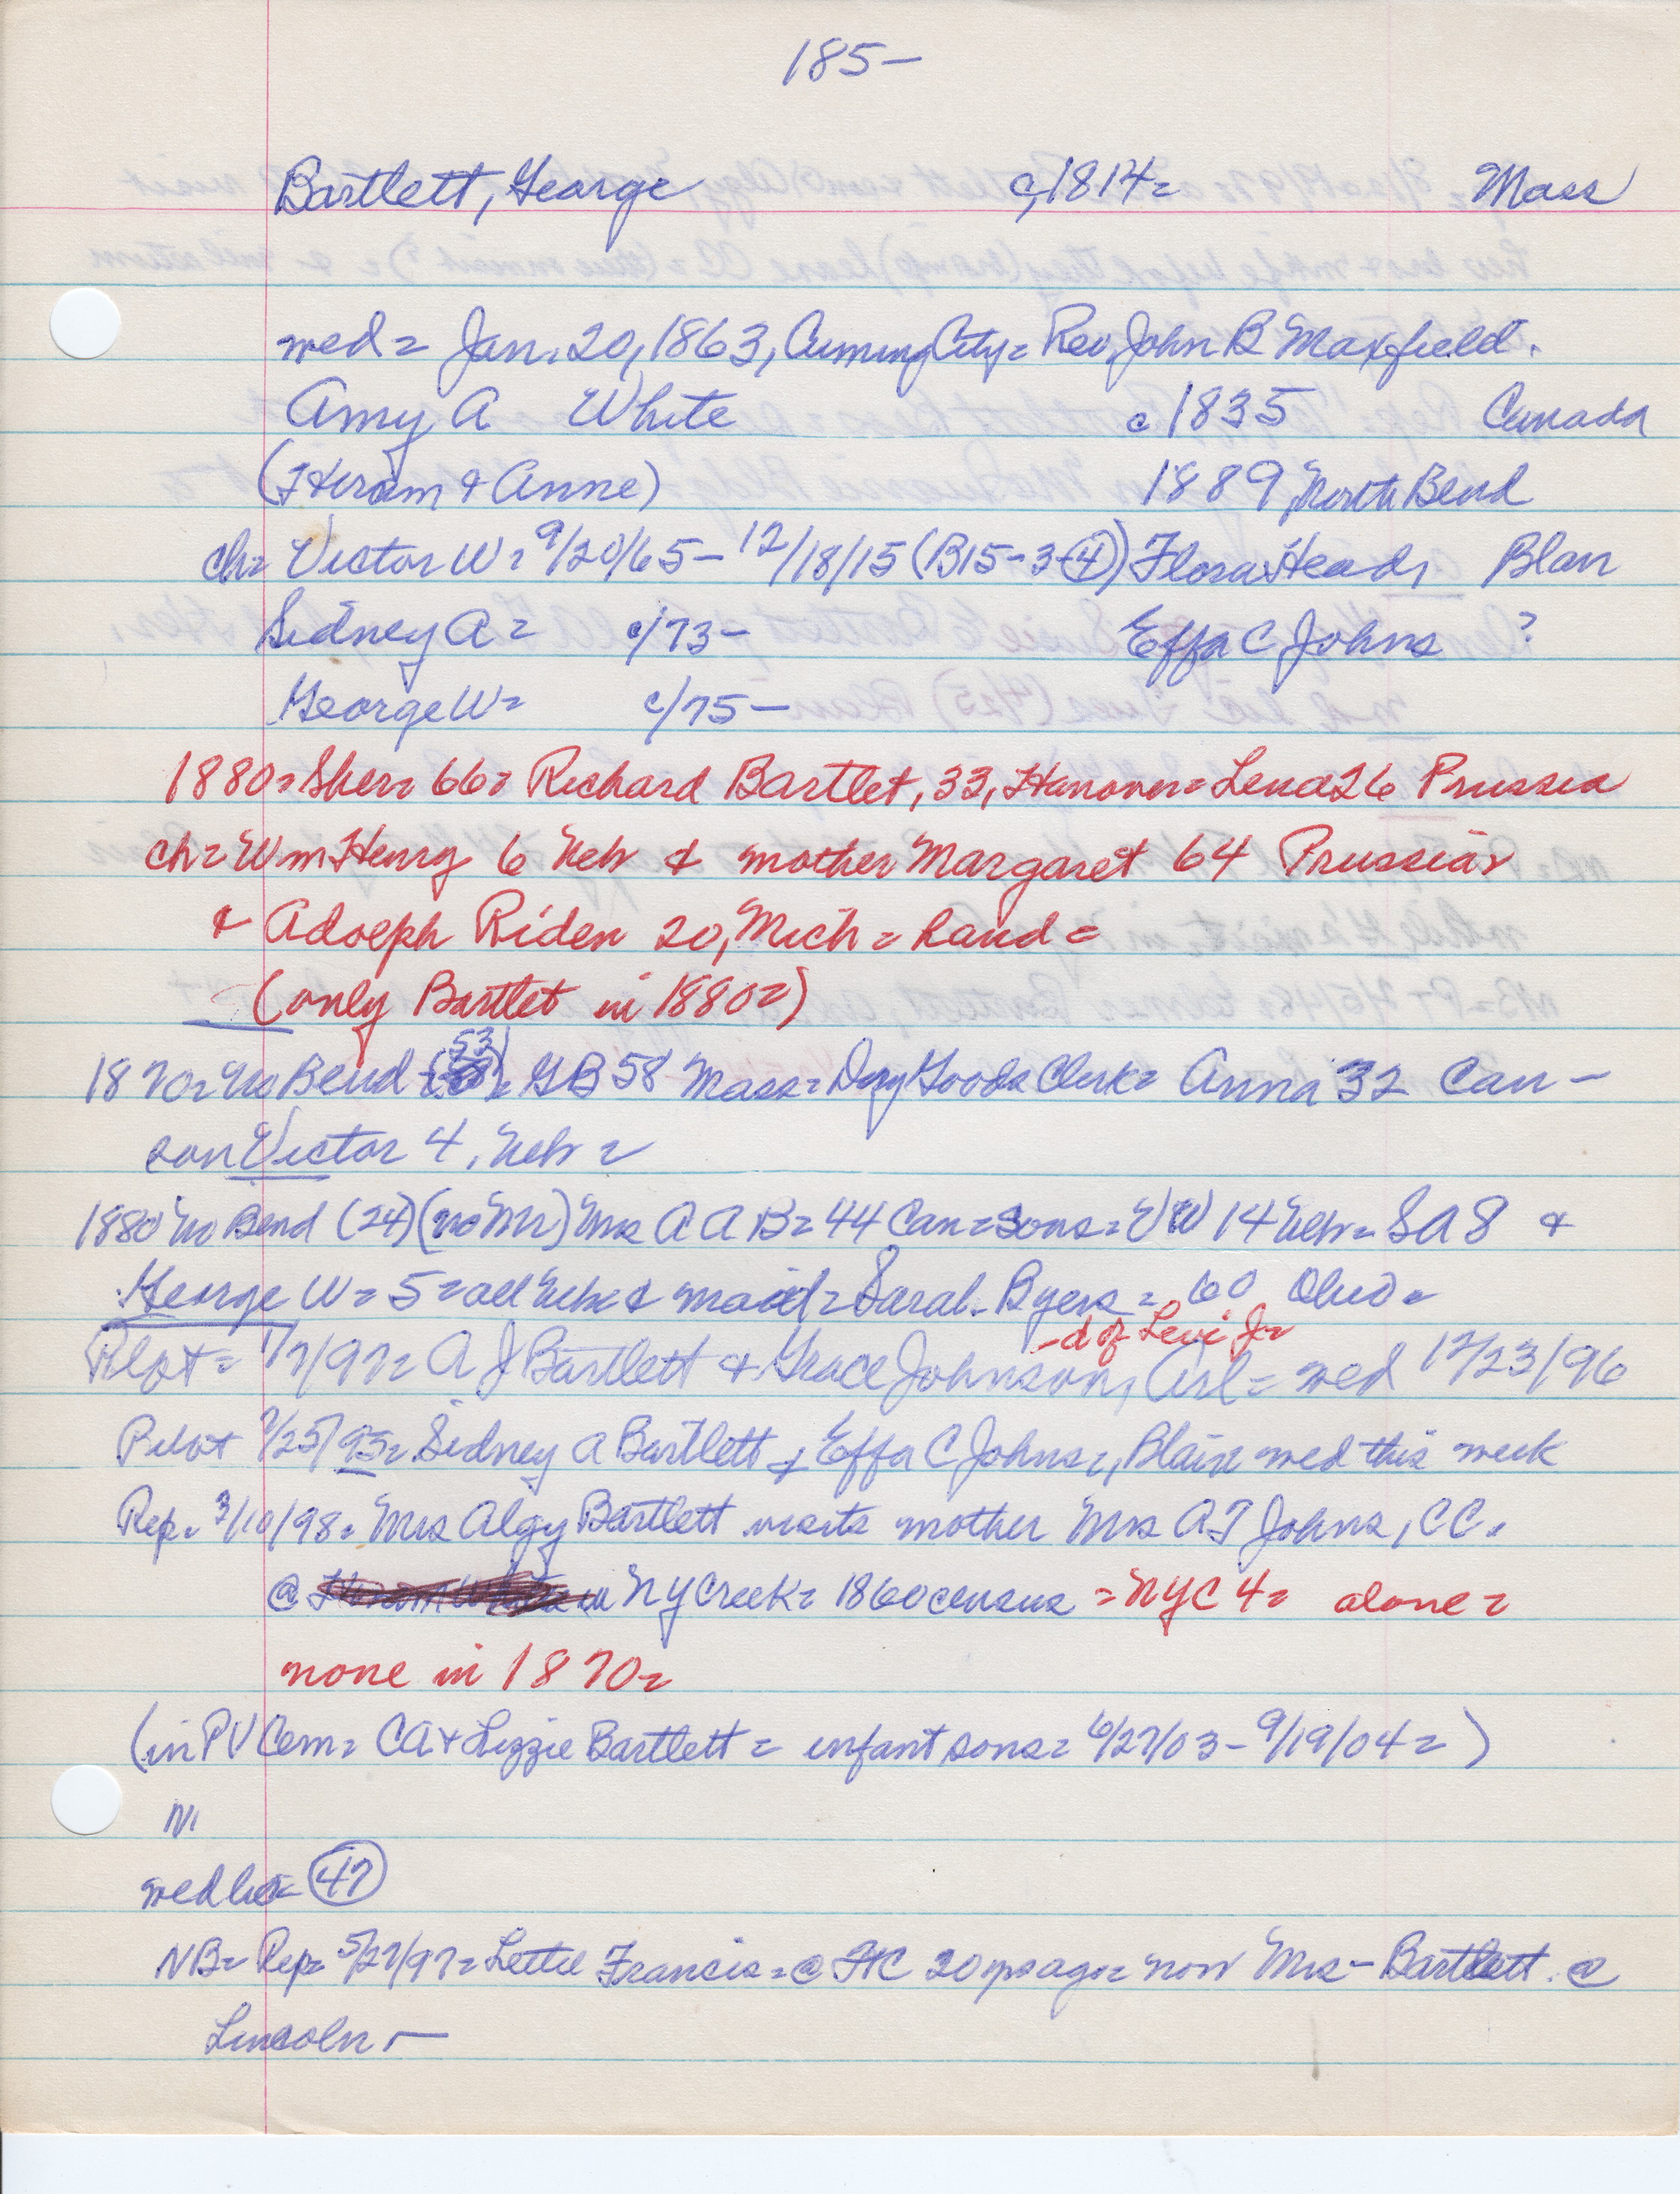 185-
Bartlett, George c,1814= Mass
wed= Jan. 20, 1863, Cuming City= Rev, John B Maxfield.
Amy A White c 1835 Canada
(Hiram & Anne) 1889, North Bend
ch= Victor W= 9/20/65- 12/18/15 (B15-3-4) Flora Head, Blair
Sidney A= c/73- Effa C Johns ?
George W= c/75-
1880= Sher= 66= Richard Bartlet, 33, Hanover= Lena 26 Prussia
ch= Wm Henry 6 Neb & mother Margaret 64 Prussia=
& Adolph Riden 20, Mich = hand =
(only Bartlet in 1880=)
1870= No Bend (53)= GB 58 Mass= Dry Goods Clerk= Anna 32 Can-
son Victor 4, Neb =
1880 No Bend (24) (no Mr) Mrs A A B= 44 Can= sons= VW 14 Neb= SA 8 &
George W= 5= all Neb & maid= Sarah Byers= 60 Ohio=
-d of Levi J=
Pilot= 1/7/97= A J Bartlett & Grace Johnson, Arl= wed 12/23/96
Pilot 7/25/95= Sidney A Bartlett & Effa C Johns=, Blair wed this week
Rep= 3/10/98= Mrs Algy Bartlett visits mother Mrs A T Johns, CC.
@ NY Creek= 1860 census = NYC 4= alone=
none in 1870=
(in PV Cem= CA & Lizzie Bartlett = infant sons= 6/27/03- 9/19/04=)
N
wed lic= 47
NB= Rep= 5/27/97= Lettie Francis= @ FTC 20 yrs ago= now Mrs- Bartlett @
Lincoln-